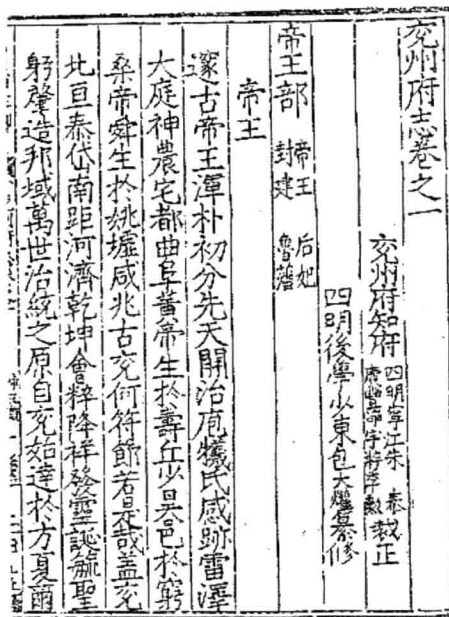 兖州府志卷之一
兖州府知府 四明寧江朱 泰 裁正
四明後學少東包大爟纂修
帝王部 帝王 后妃 封建 魯
帝王
邃古帝王渾朴初分先天開治庖犧氏感跡雷澤
大庭神農宅都曲阜黃帝生於壽丘少昊邑於窮
桑帝舜生於姚墟咸兆古兖何符節若是哉蓋兖
北亘泰岱南距河濟乾坤會粹降祥發靈誕毓聖
躬肇造邦域萬世治統之原自兖始達於方夏爾